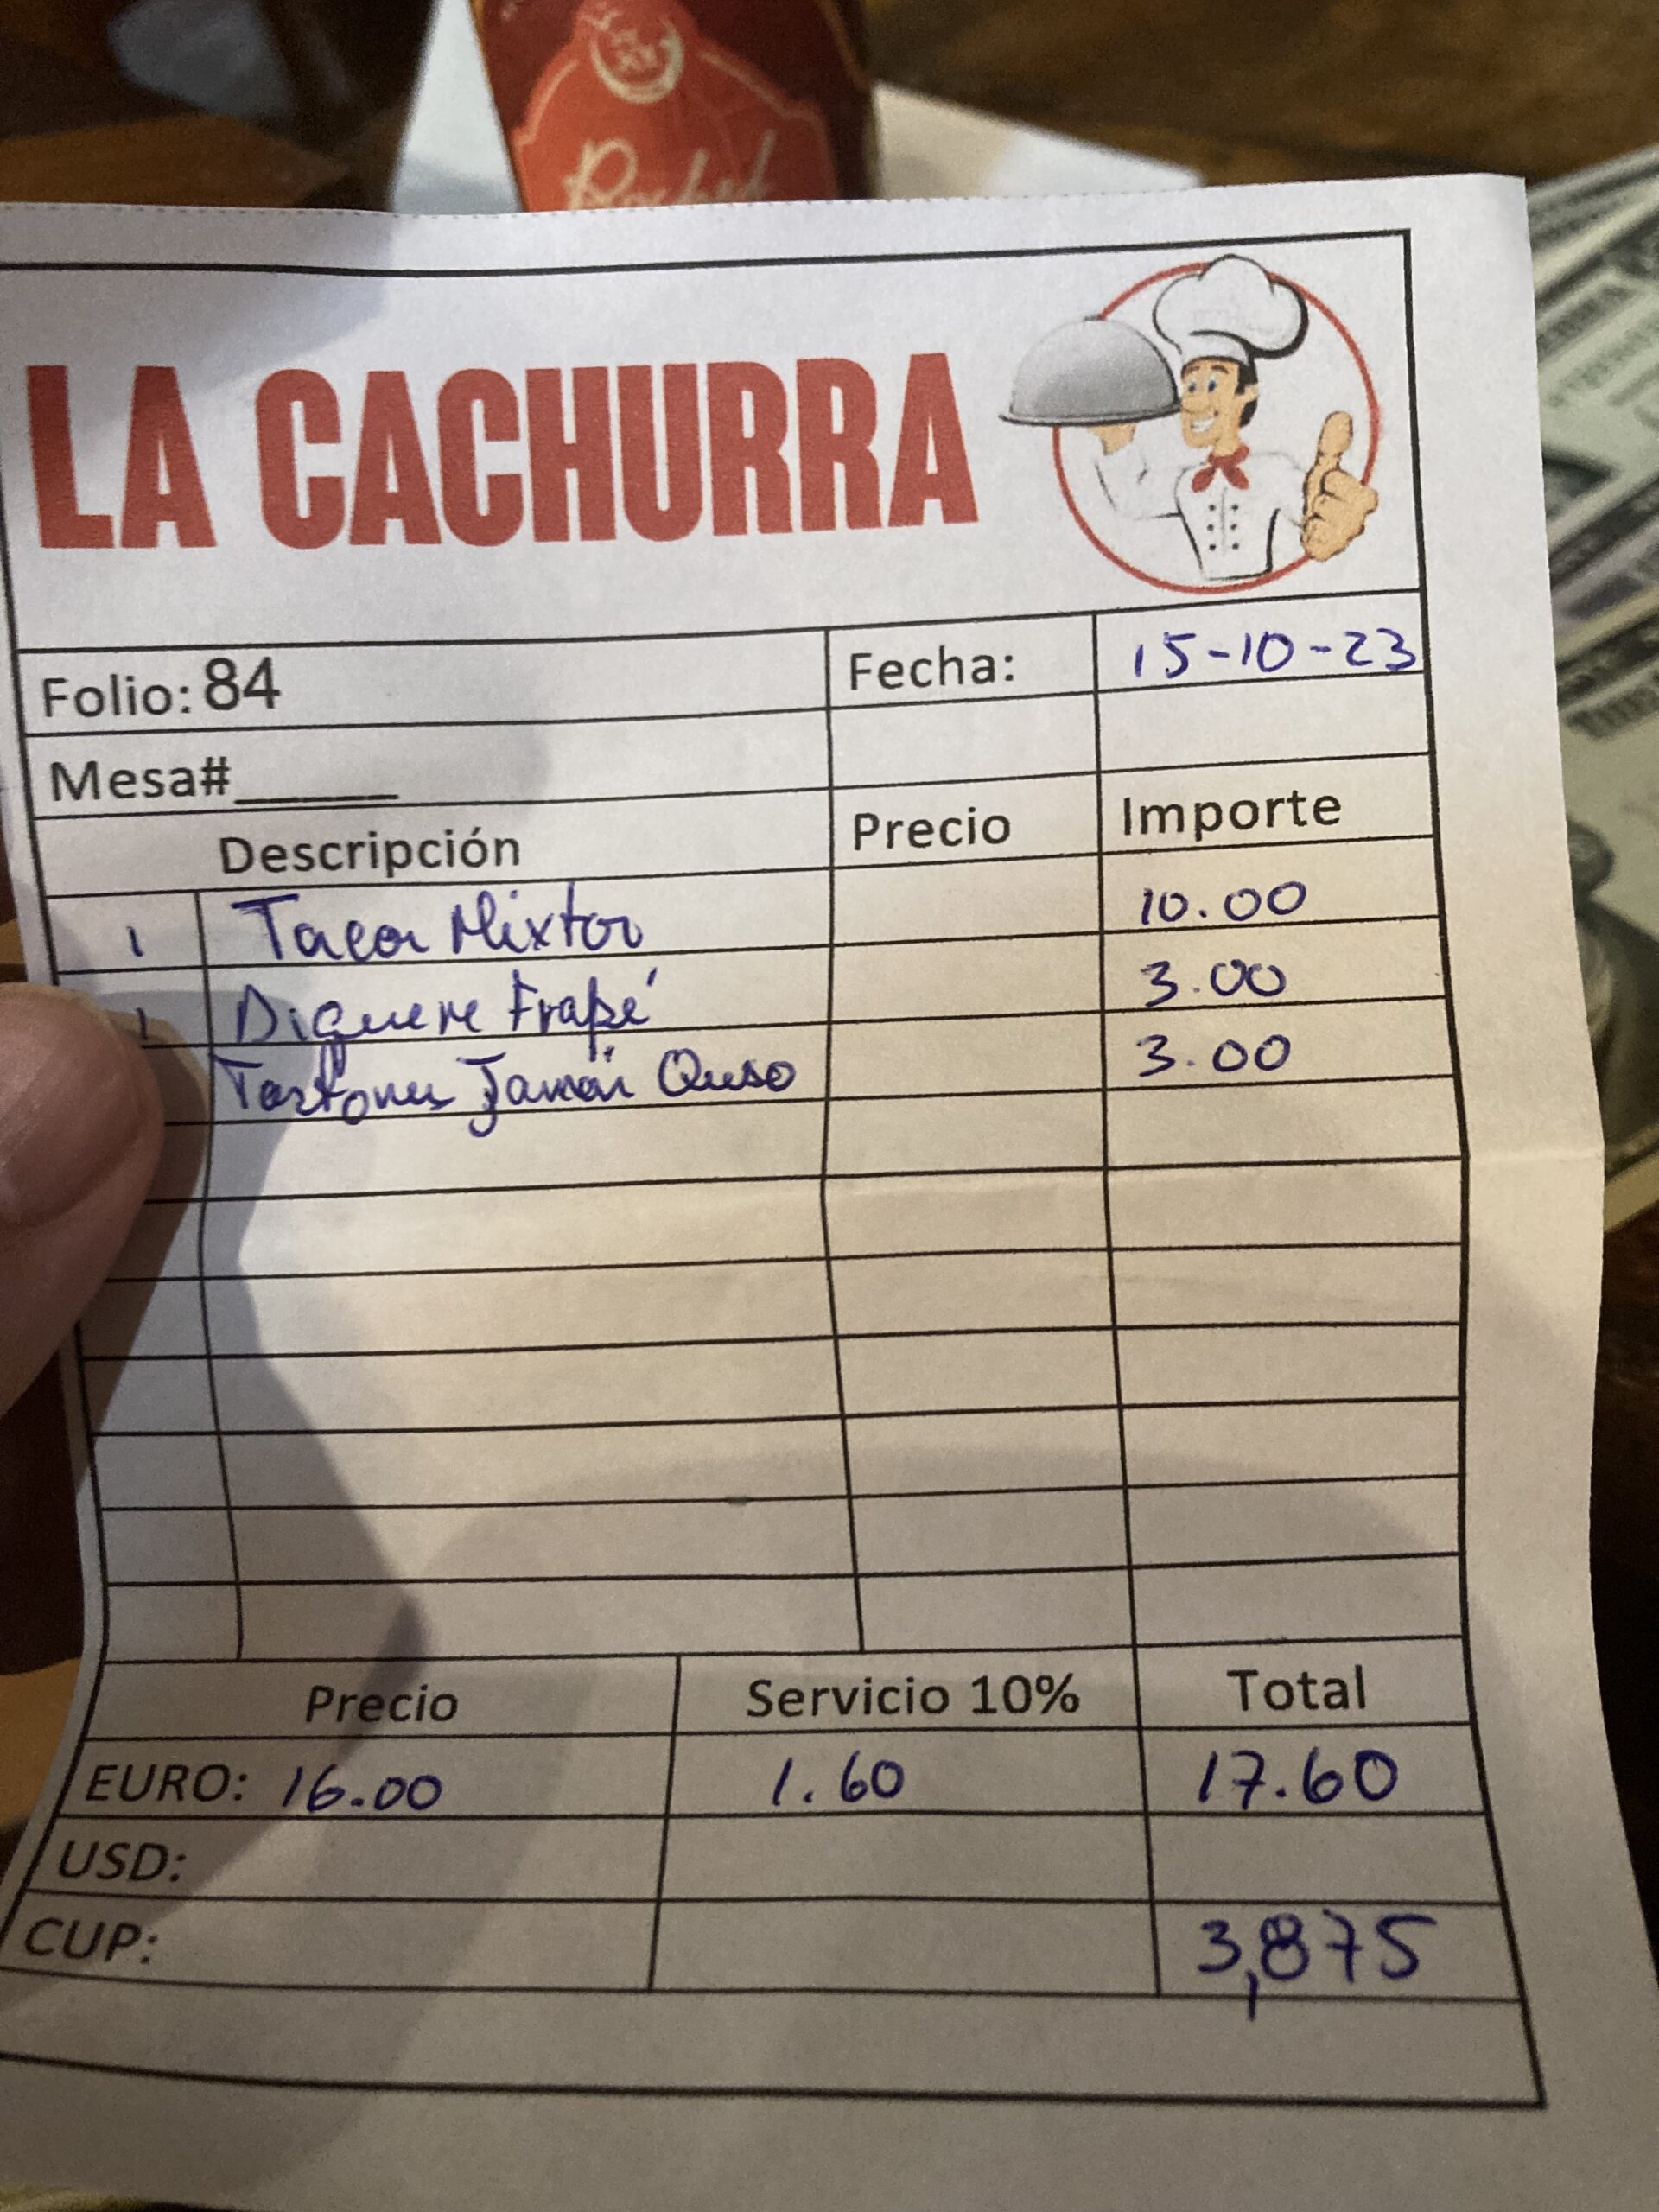 Rachel
LA CACHURRA
Folio: 84 Fecha: 15-10-23
Mesa#_____
Descripción Precio Importe
1 Tacos Mixtos 10.00
1 Diquere Frapé 3.00
Tostones Jamón Queso 3.00
Precio Servicio 10% Total
EURO: 16.00 1.60 17.60
USD:
CUP: 3,875